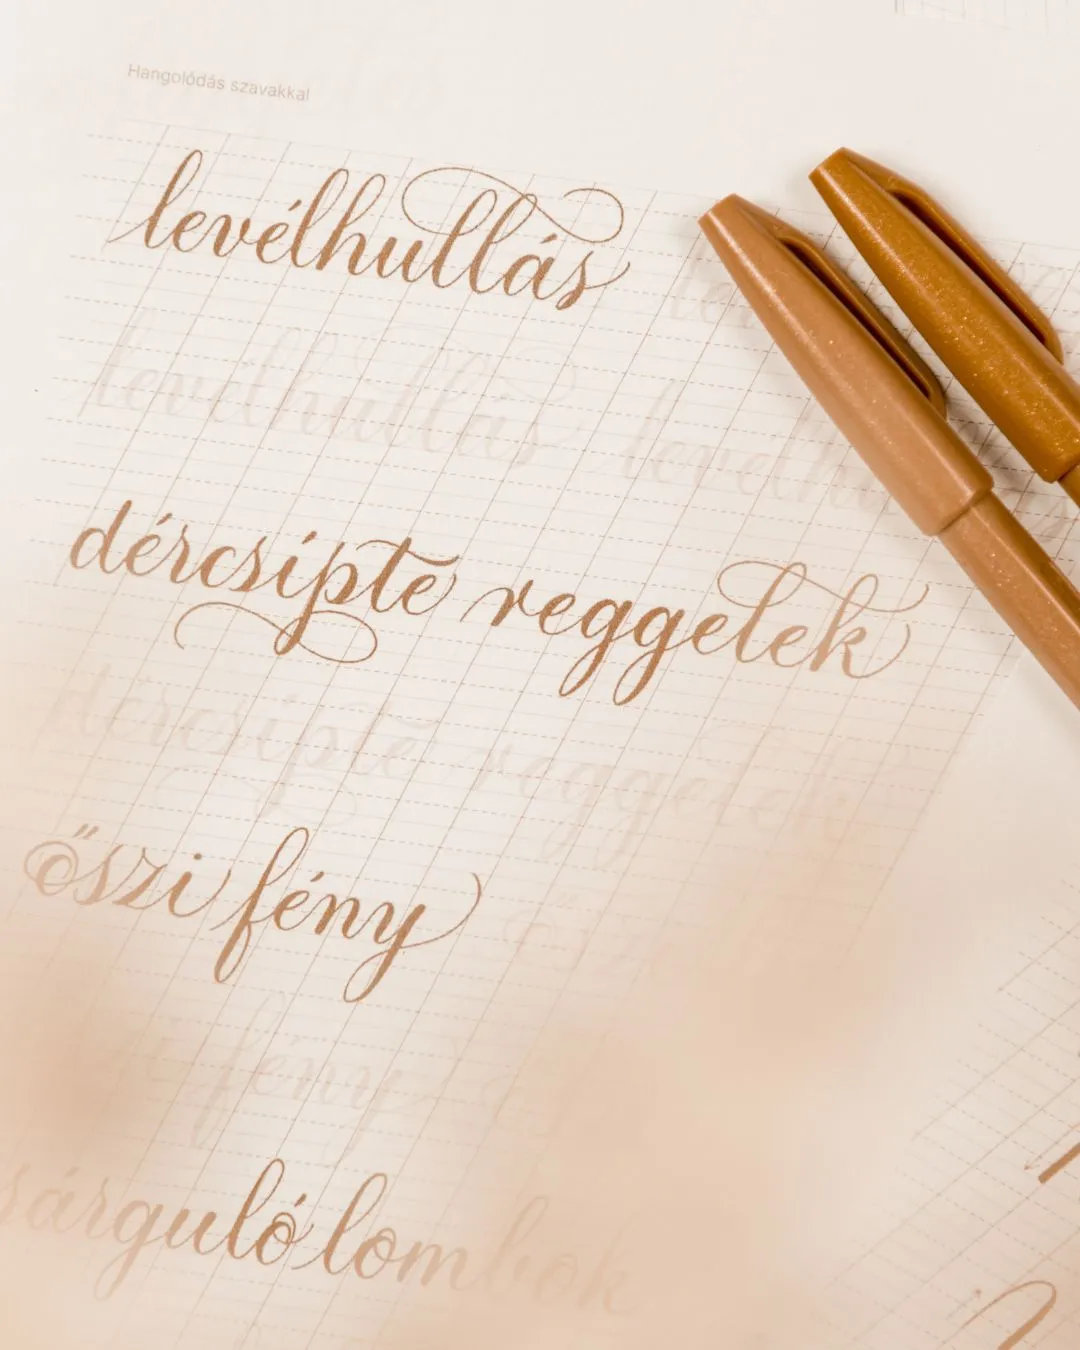 Hangolódás szavakkal
levélhullás
levélhullás
dércsípte reggelek
dércsípte reggelek
őszi fény
fény
sárguló lombok